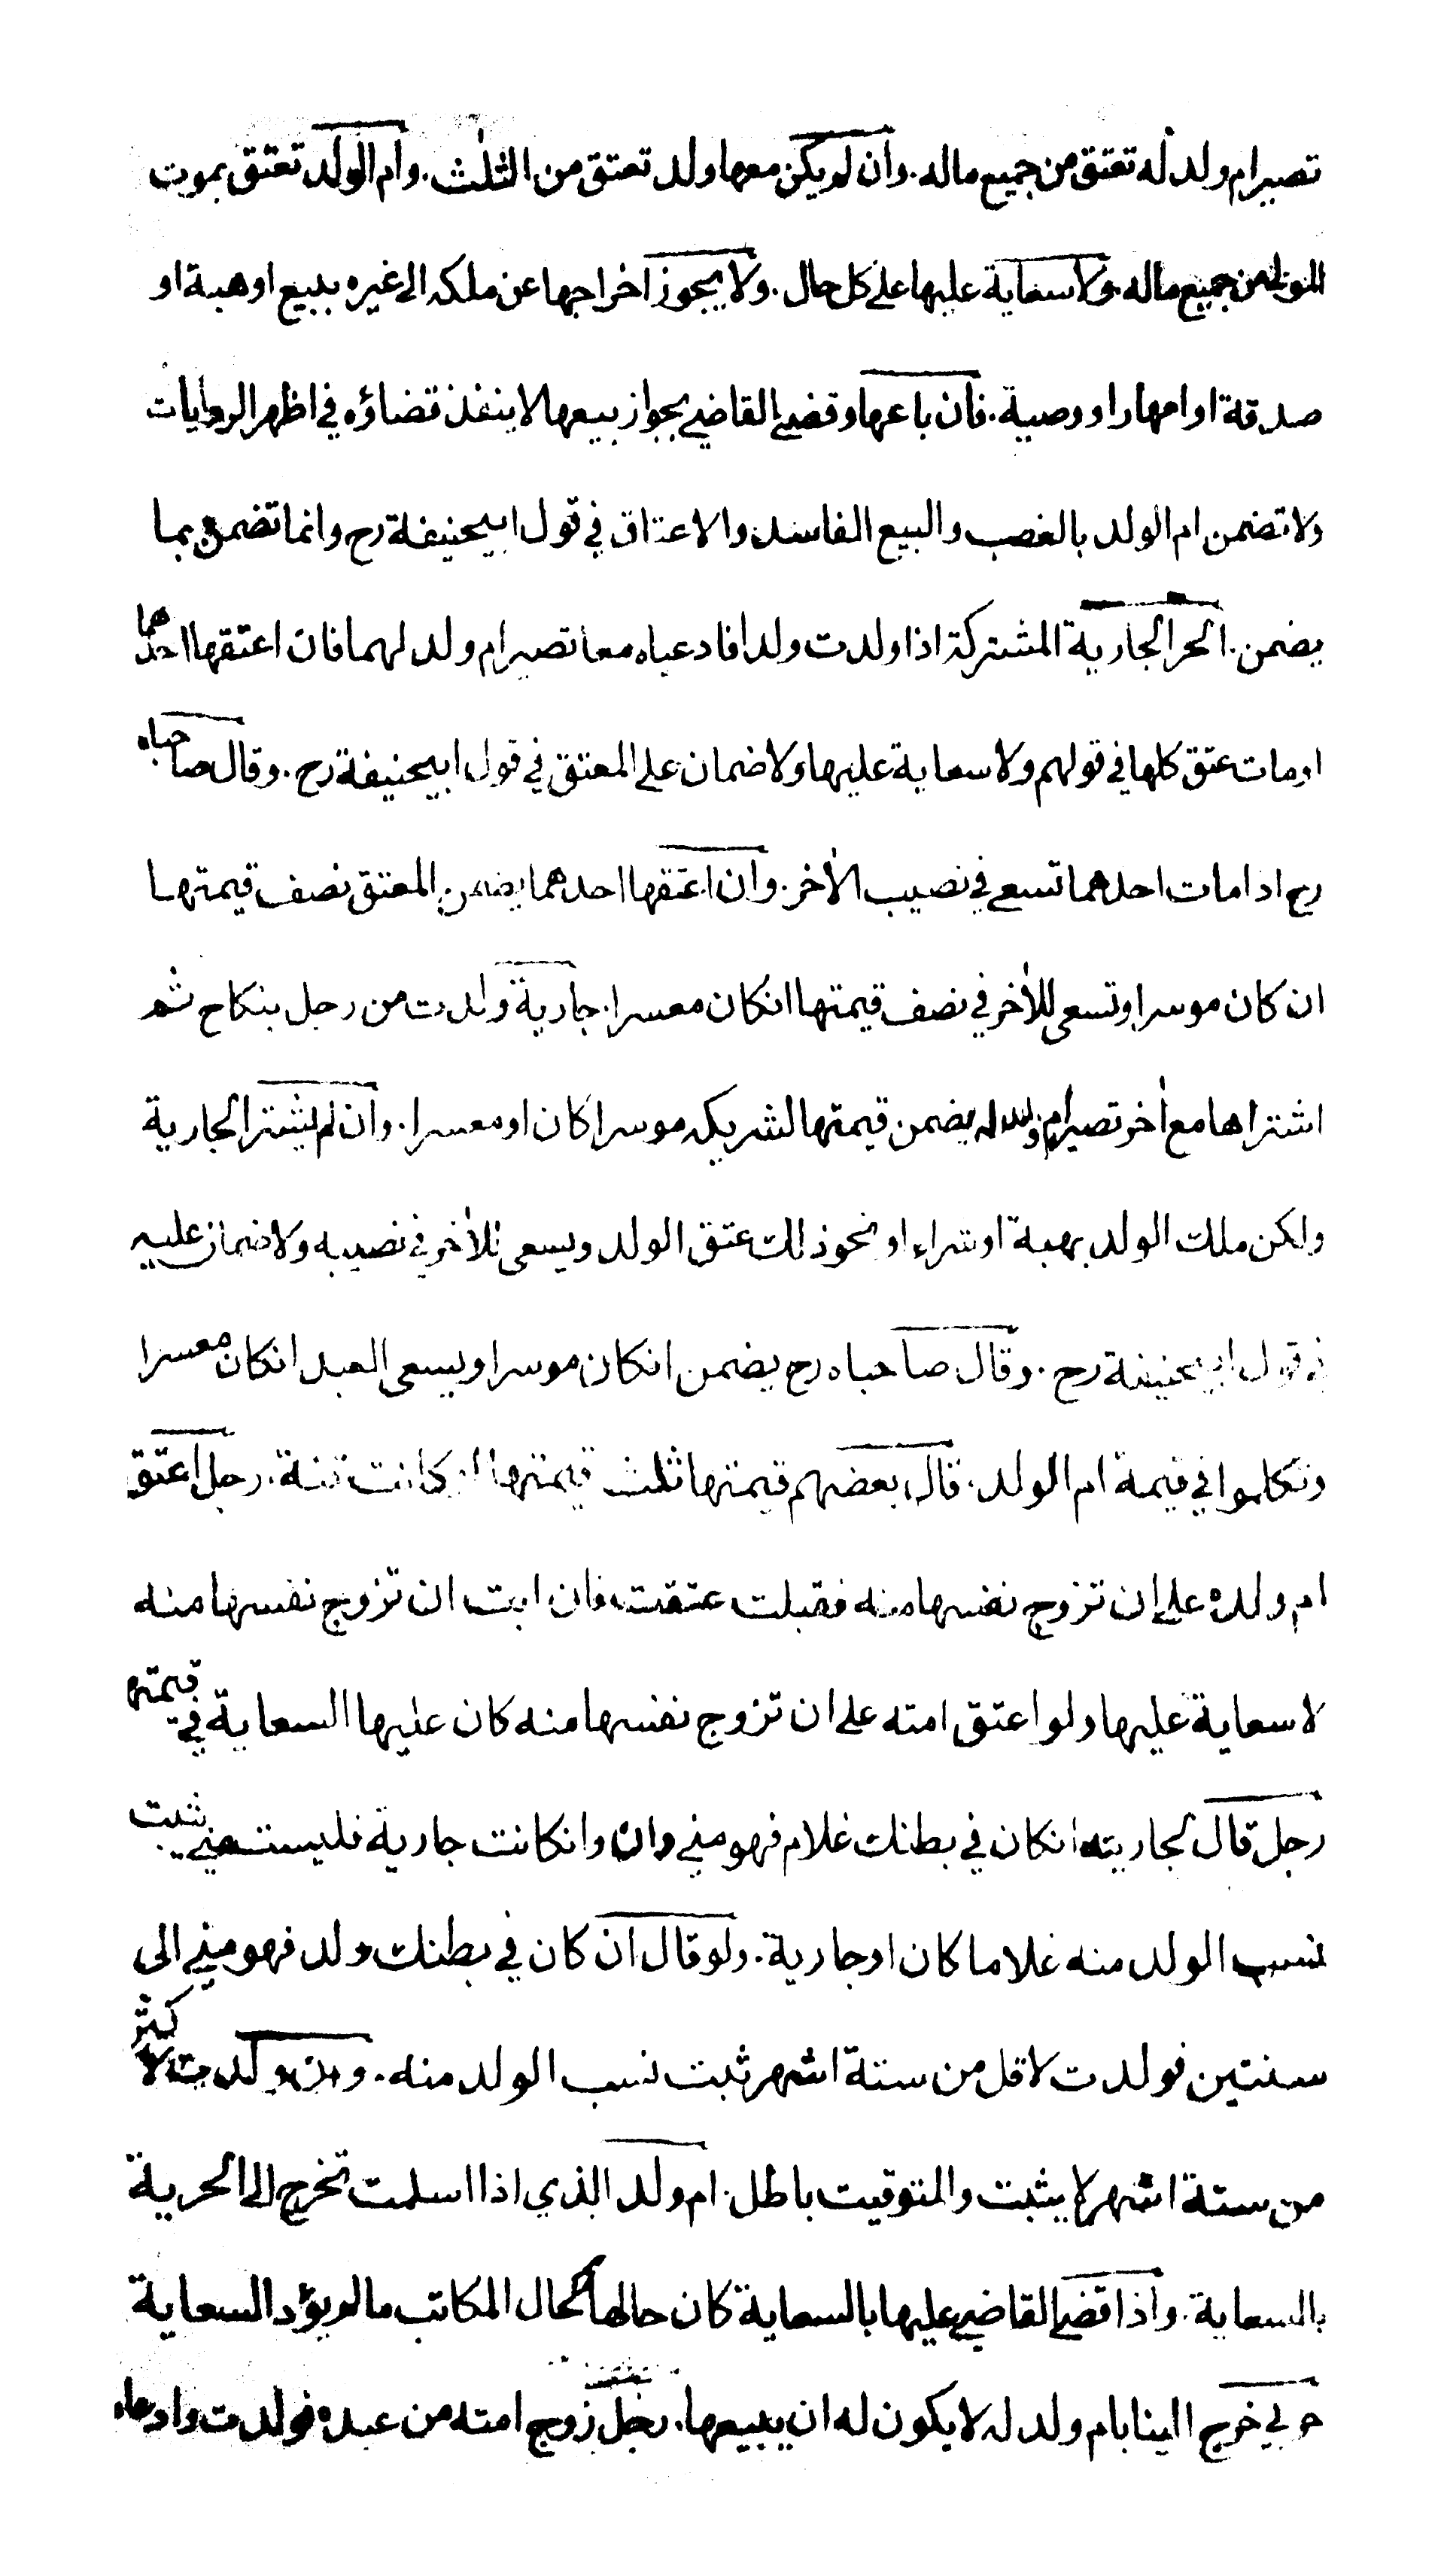 تصير ام ولد له تعتق من جميع ماله . وان لم يكن معها ولد تعتق من الثلث . وام الولد تعتق بموت
المولى من جميع ماله . ولا سعاية عليها على كل حال . ولا يجوز اخراجها عن ملكه الى غيره ببيع او هبة او
صدقة او امهار او وصية . فان باعها وقضى القاضي بجواز بيعها لا ينفذ قضاؤه في اظهر الروايات
ولا تضمن ام الولد بالغصب والبيع الفاسد والاعتاق في قول ابيحنيفة رح وانما تضمن بما
يضمن . الحر الجارية المشتركة اذا ولدت ولدا فادعياه معا تصير ام ولد لهما فان اعتقها احدهما
او مات عتق كلها في قولهم ولا سعاية عليها ولا ضمان على المعتق في قول ابيحنيفة رح . وقال صاحباه
رح اذا مات احدهما تسعى في نصيب الاخر . وان اعتقها احدهما يضمن المعتق نصف قيمتها
ان كان موسرا وتسعى للآخر في نصف قيمتها انكان معسرا . جارية ولدت من رجل بنكاح ثم
اشتراها مع آخر تصير ام ولد له يضمن قيمتها لشريكه موسرا كان او معسرا . وان لم يشتر الجارية
ولكن ملك الولد بهبة او شراء او نحو ذلك عتق الولد ويسعى للآخر في نصيبه ولا ضمان عليه
في قول ابيحنيفة رح . وقال صاحباه رح يضمن انكان موسرا ويسعى العبد انكان معسرا
وتكلموا في قيمة ام الولد . قال بعضهم قيمتها ثلث قيمتها ان كانت قنة . رجل اعتق
ام ولده على ان تزوج نفسها منه فقبلت عتقت فان ابت ان تزوج نفسها منه
لا سعاية عليها ولو اعتق امته على ان تزوج نفسها منه كان عليها السعاية في قيمتها
رجل قال لجاريته انكان في بطنك غلام فهو مني وان وانكانت جارية فليست مني يثبت
نسب الولد منه غلاما كان او جارية . ولو قال ان كان في بطنك ولد فهو مني الى
سنتين فولدت لاقل من ستة اشهر ثبت نسب الولد منه . وان ولدت لاكثر
من ستة اشهر لا يثبت والتوقيت باطل . ام ولد الذي اذا اسلمت تخرج الى الحرية
بالسعاية . واذا قضى القاضي عليها بالسعاية كان حالها كحال المكاتب ما لم يؤد السعاية
حربي خرج الينا بام ولد له لا يكون له ان يبيعها . رجل زوج امته من عبده فولدت وادعاه